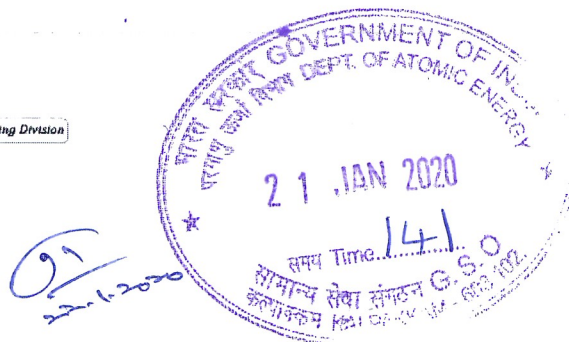 ing Division
भारत सरकार GOVERNMENT OF
परमाणु ऊर्जा विभाग DEPT. OF ATOMIC ENERGY
21 JAN 2020
समय Time 141
सामान्य सेवा संगठन G. S. O
कल्पाक्कम 603 102.
22.1.2020